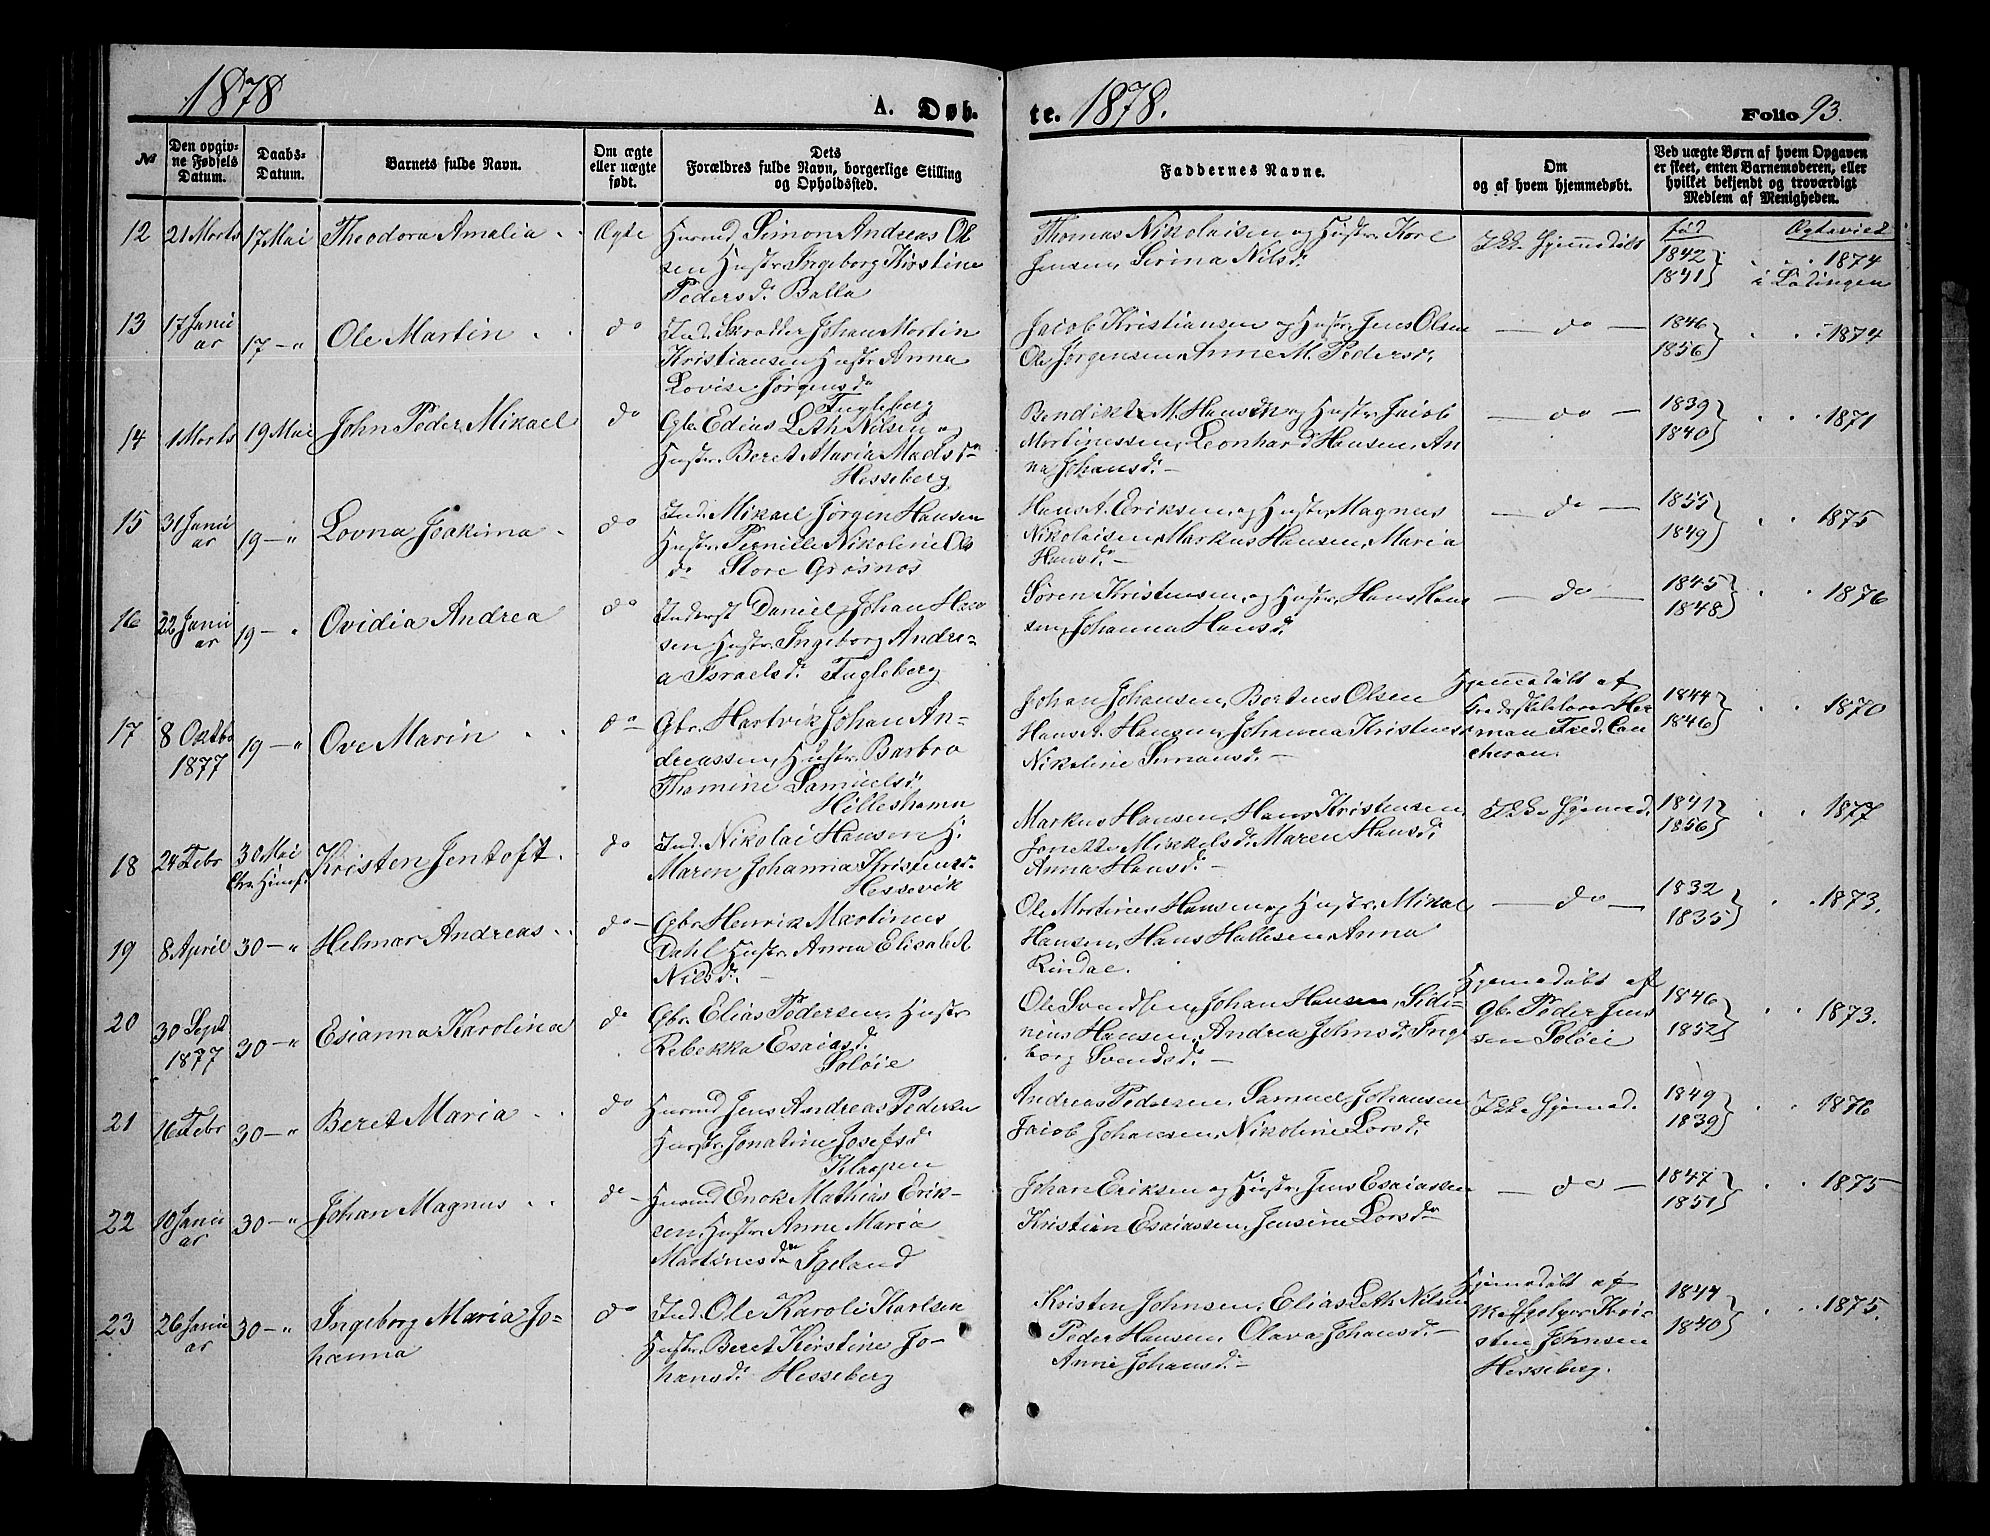 1878
A. Døb-
te. 1878.
Folio 93.
№
Den opgiv-
ne Fødsels
Datum.
Daabs-
Datum.
Barnets fulde Navn.
Om ægte
eller uægte
født.
Dets
Forældres fulde Navn, borgerlige Stilling
og Opholdssted.
Faddernes Navne.
Om
og af hvem hjemmedøbt.
Ved uægte Børn af hvem Opgaven
er skeet, enten Barnemoderen, eller
hvilket bekjendt og troværdigt
Medlem af Menigheden.
12
21 Marts
17 Mai
Theodora Amalia
Ægte
Husmd Simon Andreas Ol
sen Hustr. Ingeborg Kirstine
Pedersd. Balla
Thomas Nikolaisen og Hustr. Kore
Jensen, Serina Nilsd.
Ikke Hjemmedøbt
fød
Ægteviet
1842
1841
1874
i Lødingen
13
17 Janu
ar
17 — "
Ole Martin
do
Ind. Skrædder Johan Martin
Kristiansen Hustr. Anna
Lovise Jørgensd.
Fugleberg
Jacob Kristiansen og Hustr. Jens Olsen
Ole Jørgensen, Anne M. Pedersd.
— do —
1846
1856
1874
14
1 Marts
19 Mai
John Peder Mikael
do
Gbr. Edias Leth Nilsen og
Hustr. Beret Maria Madsd.
Hesseberg
Bendikt M. Hansen og Hustr. Jacob
Martinessen, Leonhard Hansen, An
na Johansd. —
— do —
1839
1840
1871
15
31 Janu
ar
19 — "
Lovna Joakima
do
Ind. Mikael Jørgen Hansen
Hustr. Pernille Nikoline Ols
d. Store Grøsnæs
Hans A. Eriksen, og Hustr. Magnus
Nikolaisen, Markus Hansen, Maria
Hansd. —
— do —
1855
1849
1875
16
22 Janu
ar
19 — "
Ovidia Andrea
do
Inderst Daniel Johan Han
sen Hustr. Ingeborg Andre-
a Israelsd. Fugleberg
Søren Kristensen, og Hustr. Hans Han
sen, Johanna Hansd.
— do —
1845
1848
1876
17
8 Oktbr
1877
19 — "
Ove Marin
do
Gbr. Hartvik Johan An-
dreassen, Hustr. Barbro
Thomine Samuelsd.
Hølleshamn
Johan Johansen, Bertens Olsen
Hans A. Hansen, Johanna Kristens
Nikoline Simonsd. —
Hjemmedøbt af
man Fred.
1844
1846
1870
18
24 Febr
30 Mai
Chr. Himf.
Kristen Jentoft
do
Ind. Nikolai Hansen H.
Maren Johanna Kristensd.
Hessevik
Markus Hansen, Hans Kristensen,
Jonette Mikkelsd. Maren Hansd.
Anna Hansd. —
Ikke Hjemmed.
1841
1856
1877
19
8 April
30 — "
Helmar Andreas
do
Gbr. Henrik Martinus
Dahl Hustr. Anna Elisabet
Nilsd. —
Ole Martines Hansen og Hustr. Mikal
Hansen, Hans Hallesen, Anna
Rindal.
— do —
1832
1835
1873.
20
30 Sept
1877
30 — "
Esianna Karolina
do
Gbr. Elias Pedersen, Hustr
Rebekka Esaiasd.
Soløie
Ole Svendsen, Johan Hansen, Sidi-
nius Hansen, Andrea Johnsd. Inge
borg Svendsd. —
Hjemmedøbt af
Gbr. Peder Jens
sen Soløi
1846
1852
1873.
21
16 Febr
30 — "
Beret Maria
do
Husmd Jens Andreas Pedersen
Hustr. Jonatine Josefsd.
Klaapen
Andreas Pedersen, Samuel Johansen
Jacob Johansen, Nikoline Larsd.
Ikke Hjemmed.
1849
1839
1876
22
10 Janu
ar
30 — "
Johan Magnus
do
Husmd Enok Mathias Erik-
sen, Hustr. Anne Maria
Martinesd. Igeland
Johan Eriksen og Hustr. Jens Esaiassen
Kristian Esaiassen, Jensine Larsd.
— do —
1847
1851
1875
23
26 Janu
ar
30 — "
Ingeborg Maria Jo-
hanna
do
Ind. Ole Karoli Karlsen
Hustr. Beret Kirstine Jo-
hansd. Hesseberg
Kristen Johnsen, Elias Leth Nilsen
Peder Hansen, Olava Johansd. —
Anne Johansd. —
Hjemmedøbt af
Kri-
sten Johnsen
Hesseberg.
1844
1840
1875.